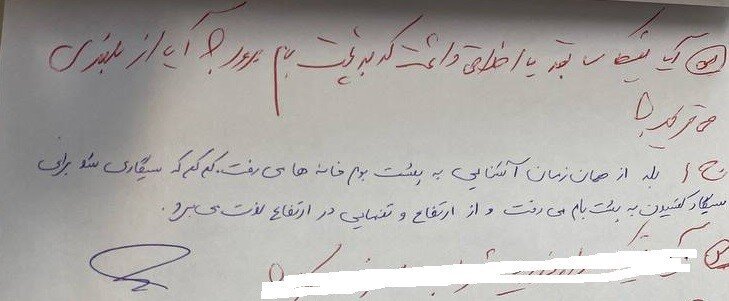 س) آیا نیکا سابقه یا اخلاقی داشت که به پشت بام برود؟ آیا از بلندی
می‌ترسید؟
ج) بله از همان زمان آشنایی به پشت بوم خانه ها می رفت. کم کم که سیگاری شد برای
سیگار کشیدن به پشت بام می رفت و از ارتفاع و تنهایی در ارتفاع لذت می برد.
س)